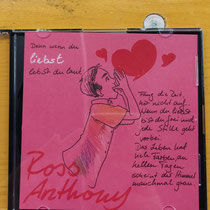 Denn wenn du
liebst
lebst du laut
Fang die Zeit,
hör nicht auf.
Wenn du liebst
bist du frei und
jede Stille geht
vorbei.
Das Leben hat
viele Farben an
hellen Tagen
scheint der Himmel
manchmal grau
Ross
Anthony